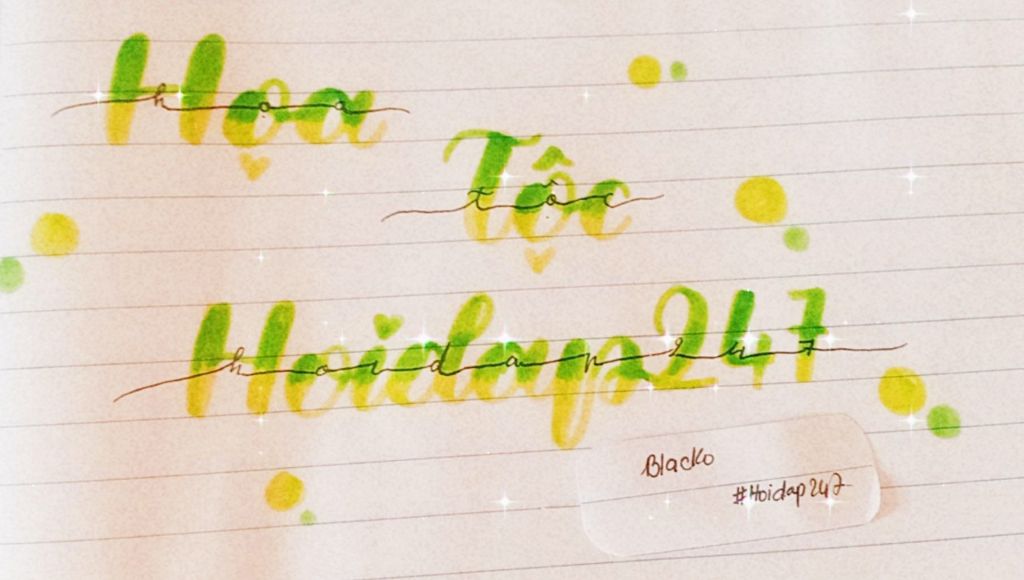 Họa
họa
Tộc
tộc
Hoidap247
hoidap247
Blacko
#Hoidap247